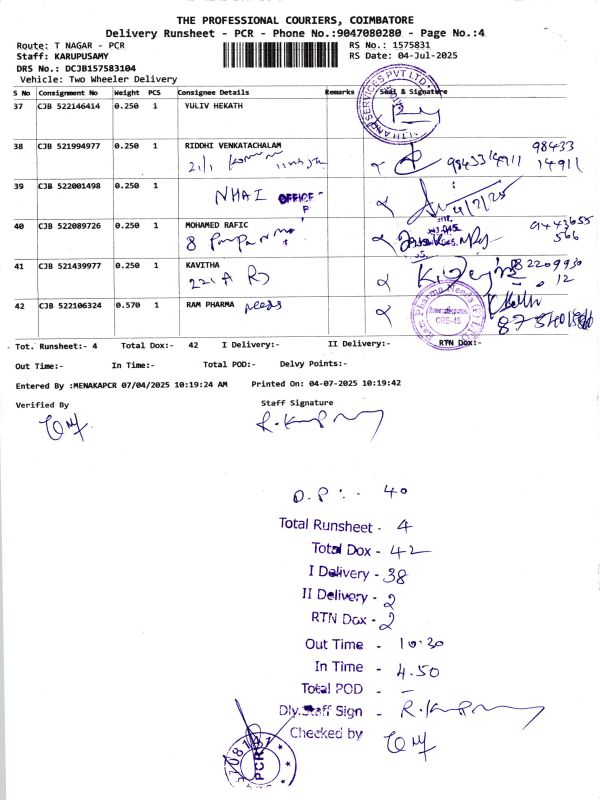 THE PROFESSIONAL COURIERS, COIMBATORE
Delivery Runsheet - PCR - Phone No.:9047080280 - Page No.:4
Route: T NAGAR - PCR
RS No.: 1575831
Staff: KARUPUSAMY
RS Date: 04-Jul-2025
DRS No.: DCJB157583104
Vehicle: Two Wheeler Delivery
S No Consignment No Weight PCS Consignee Details Remarks Seal & Signature
37 CJB 522146414 0.250 1 YULIV HEKATH
38 CJB 521994977 0.250 1 RIDDHI VENKATACHALAM 98433
21/1 9843314911 14911
39 CJB 522001498 0.250 1
NHAI OFFICE
4/7/25
40 CJB 522089726 0.250 1 MOHAMED RAFIC
8
566
41 CJB 521439977 0.250 1 KAVITHA 82209930
221 A 12
42 CJB 522106324 0.570 1 RAM PHARMA needs
Ram Pharma Needs (P) LTD
CBE-45
Tot. Runsheet:- 4 Total Dox:- 42 I Delivery:- II Delivery:- RTN Dox:-
Out Time:- In Time:- Total POD:- Delvy Points:-
Entered By :MENAKAPCR 07/04/2025 10:19:24 AM Printed On: 04-07-2025 10:19:42
Verified By Staff Signature
D.P :- 40
Total Runsheet - 4
Total Dox - 42
I Delivery - 38
II Delivery - 2
RTN Dox - 2
Out Time - 10.30
In Time - 4.50
Total POD - –
Dly.Staff Sign -
Checked by
PCRS